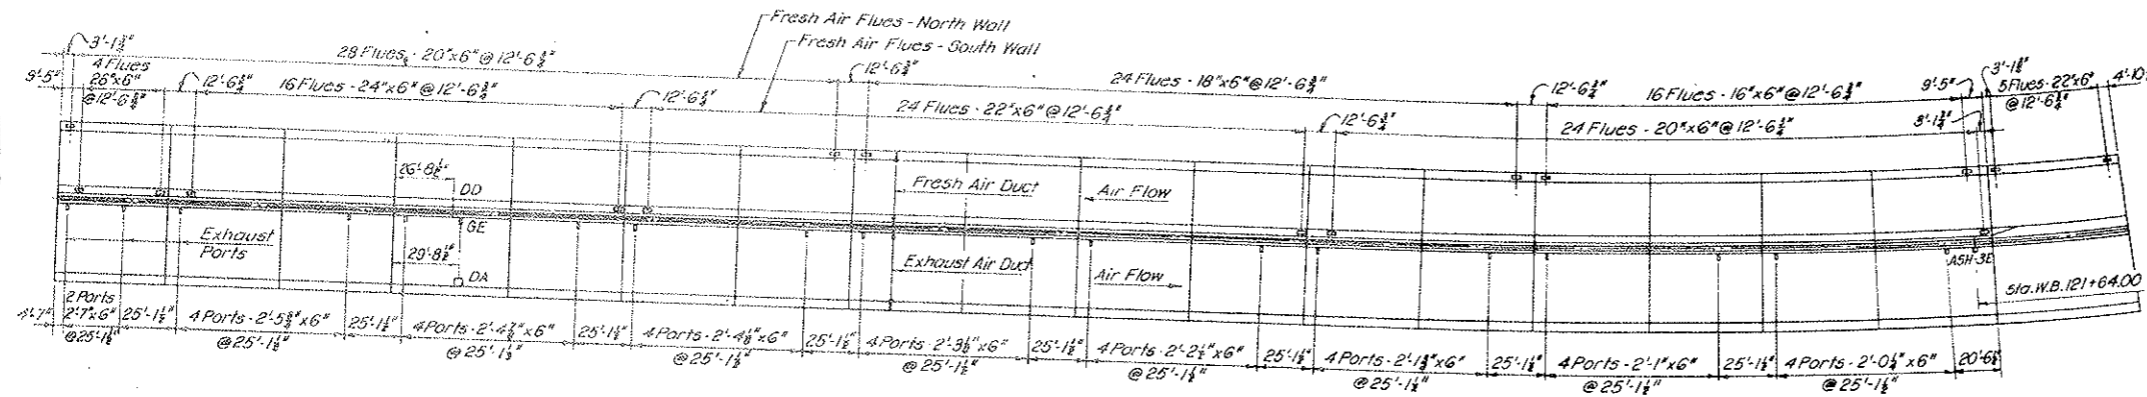 Fresh Air Flues - North Wall
Fresh Air Flues - South Wall
3'-1¾"
28 Flues - 20"x6" @ 12'-6¾"
12'-6¾"
24 Flues - 18"x6" @ 12'-6¾"
12'-6¾"
16 Flues - 16"x6" @ 12'-6¾"
9'-5"
3'-1¾"
5 Flues - 22"x6"
@ 12'-6¾"
4'-10
9'-5"
4 Flues
26"x6"
@ 12'-6¾"
12'-6¾"
16 Flues - 24"x6" @ 12'-6¾"
12'-6¾"
24 Flues - 22"x6" @ 12'-6¾"
12'-6¾"
24 Flues - 20"x6" @ 12'-6¾"
3'-1¾"
26'-8½"
DD
Fresh Air Duct
Air Flow
GE
Exhaust
Ports
29'-8½"
DA
Exhaust Air Duct
Air Flow
ASH-3E
Sta. W.B. 121+64.00
4'-7"
2 Ports
2'-7"x6"
@ 25'-1½"
25'-1½"
4 Ports - 2'-5¾"x6"
@ 25'-1½"
25'-1½"
4 Ports - 2'-4⅞"x6"
@ 25'-1½"
25'-1½"
4 Ports - 2'-4⅛"x6"
@ 25'-1½"
25'-1½"
4 Ports - 2'-3½"x6"
@ 25'-1½"
25'-1½"
4 Ports - 2'-2½"x6"
@ 25'-1½"
25'-1½"
4 Ports - 2'-1¾"x6"
@ 25'-1½"
25'-1½"
4 Ports - 2'-1"x6"
@ 25'-1½"
25'-1½"
4 Ports - 2'-0¼"x6"
@ 25'-1½"